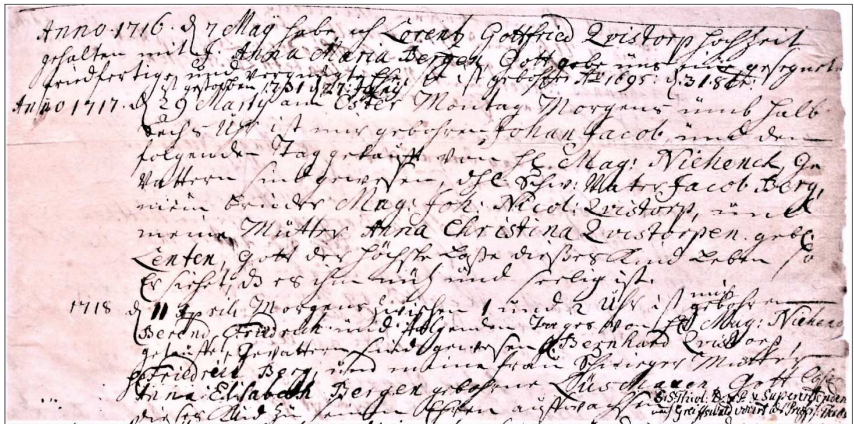 Anno 1716. d. 7 Maÿ habe ich Lorentz Gottfried Qvistorp hochzeit
gehalten mit J. Anna Maria Bergen Gott gebe uns eine gesegnete
friedfertige und vergnügte Ehe, ist gebohren Ao 1695: d. 31. 8br.
ist gestorben 1731 d. 27.
Anno 1717. d. 29 Marty am Oster Montag Morgens umb halb
sechs Uhr ist mir gebohren Johan Jacob und den
folgenden Tag getaufft von H. Mag: Niehenck, Ge
vattern sind gewesen, Schw: Vater Jacob Berg,
mein bruder Mag: Joh: Nicol: Qvistorp, und
meine Mutter Anna Christina Qvistorpen. geb:
Lenten, Gott der höchste Laße dießes Kind Leben so
Er siehet, dß es ihm nütz und seelig ist.
1718 d. 11 Aprili Morgens zwischen 1 und 2 Uhr ist mir gebohren
Berend Friedrich und folgenden Tages von H. Mag: Niehenck
getaufft, Gevattern sind gewesen Bernhard Qvistorp,
Friedrich Berg, und meine frau Schwieger Mutter
Anna Elisabeth Bergen gebohrne Gott Laße
dieses Kind zu seinen Ehren aufwachsen
S. S. Theol. D. & P. u Superintendens